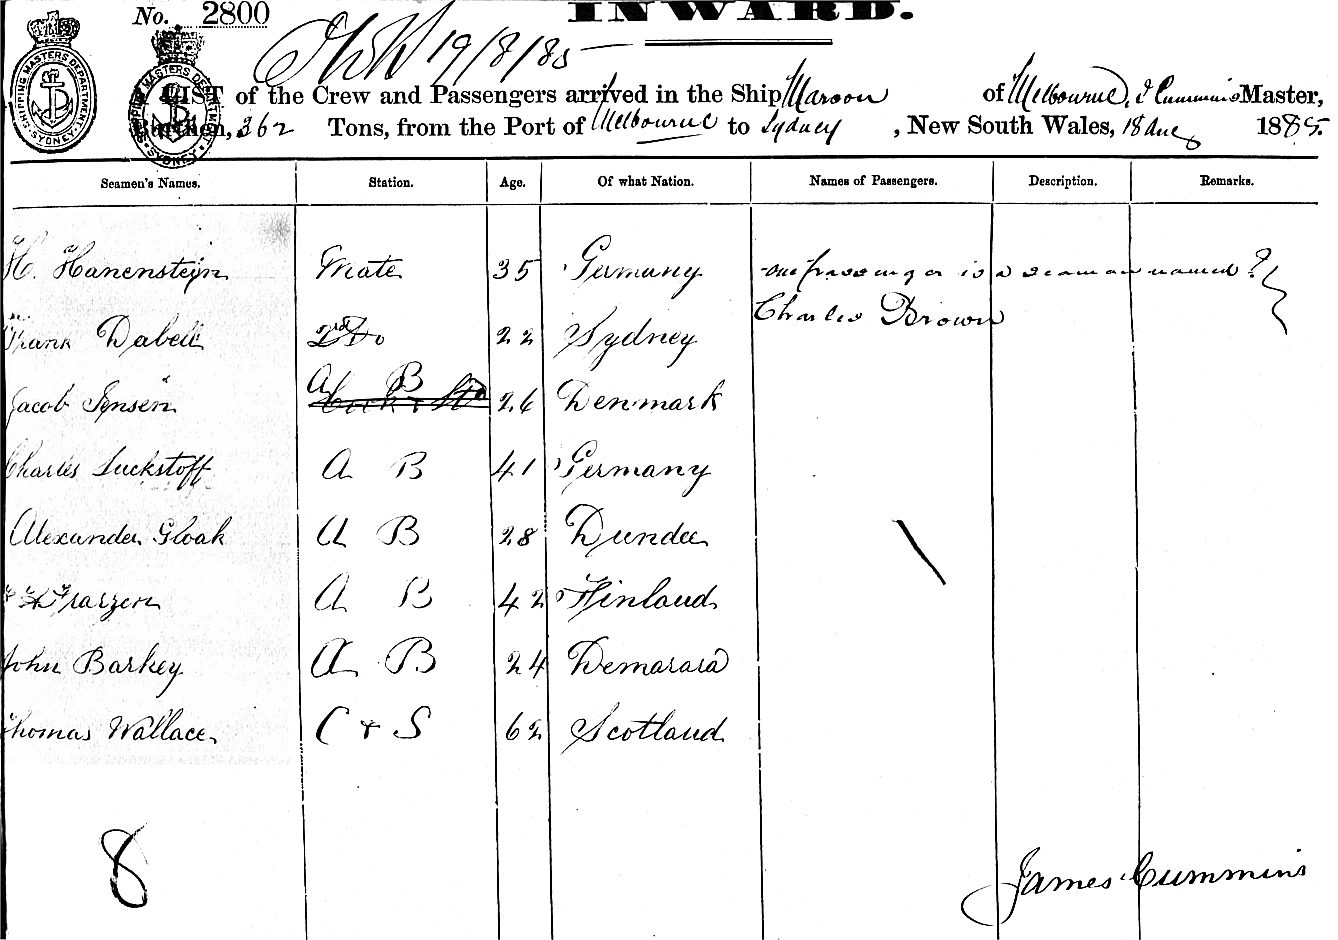 No. 2800
INWARD.
19/8/85
SHIPPING MASTERS DEPARTMENT SYDNEY
SHIPPING MASTERS DEPARTMENT SYDNEY
A LIST of the Crew and Passengers arrived in the Ship Maroon of Melbourne, J Cummins Master,
Burthen, 362 Tons, from the Port of Melbourne to Sydney, New South Wales, 18 Aug 1885.
Seamen's Names. Station. Age. Of what Nation. Names of Passengers. Description. Remarks.
H. Hanensteijn Mate 35 Germany one passenger is a seaman named
Charles Brown
Frank Dabell 2nd Do 22 Sydney
Jacob Jensen A B 26 Denmark
Charles Luckstoff A B 41 Germany
Alexander Gloak A B 28 Dundee
Franzen A B 42 Finland
John Barkey A B 24 Demarara
Thomas Wallace C & S 62 Scotland
8
James Cummins